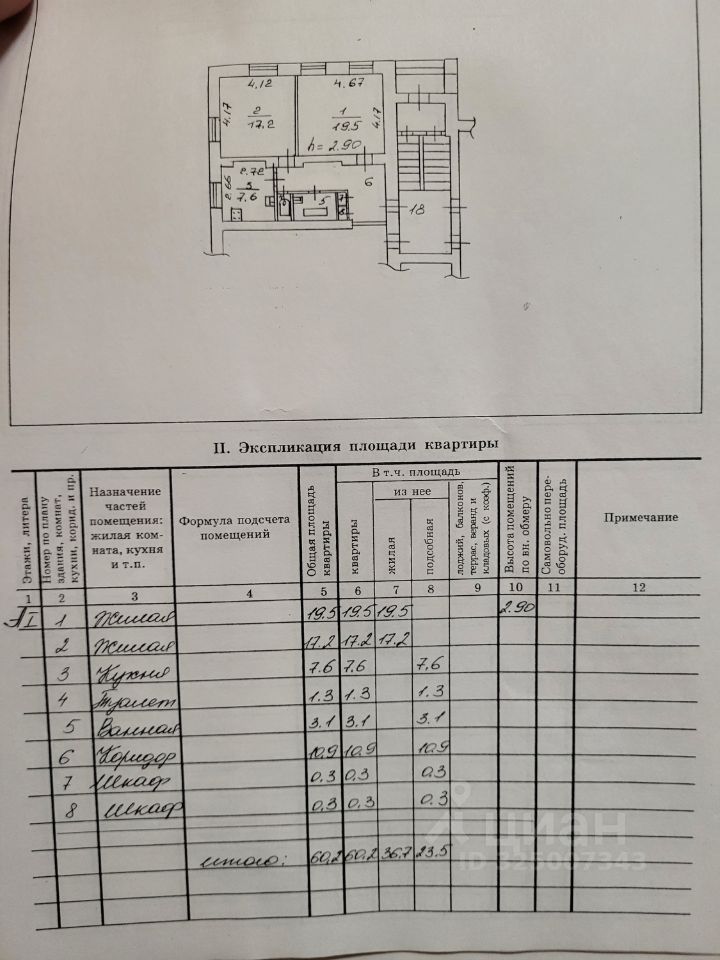 4.12
4.67
4.17
2
17,2
1
19.5
4.17
h=2.90
2.72
2.66
3
7,6
6
5
18
II. Экспликация площади квартиры
Этажи, литера
Номер по плану здания, комнат, кухни, корид. и пр.
Назначение частей помещения: жилая комната, кухня и т.п.
Формула подсчета помещений
Общая площадь квартиры
В т.ч. площадь
квартиры
из нее
жилая
подсобная
лоджий, балконов, террас, веранд и кладовых (с коэф.)
Высота помещений по вн. обмеру
Самовольно переоборуд. площадь
Примечание
1 2 3 4 5 6 7 8 9 10 11 12
I 1 Жилая 19.5 19.5 19.5 2.90
2 Жилая 17.2 17.2 17.2
3 Кухня 7.6 7.6 7,6
4 Туалет 1.3 1.3 1.3
5 Ванная 3.1 3.1 3.1
6 Коридор 10,9 10,9 10,9
7 Шкаф 0.3 0,3 0.3
8 Шкаф 0.3 0.3 0.3
итого: 60,2 60,2 36,7 23.5
циан